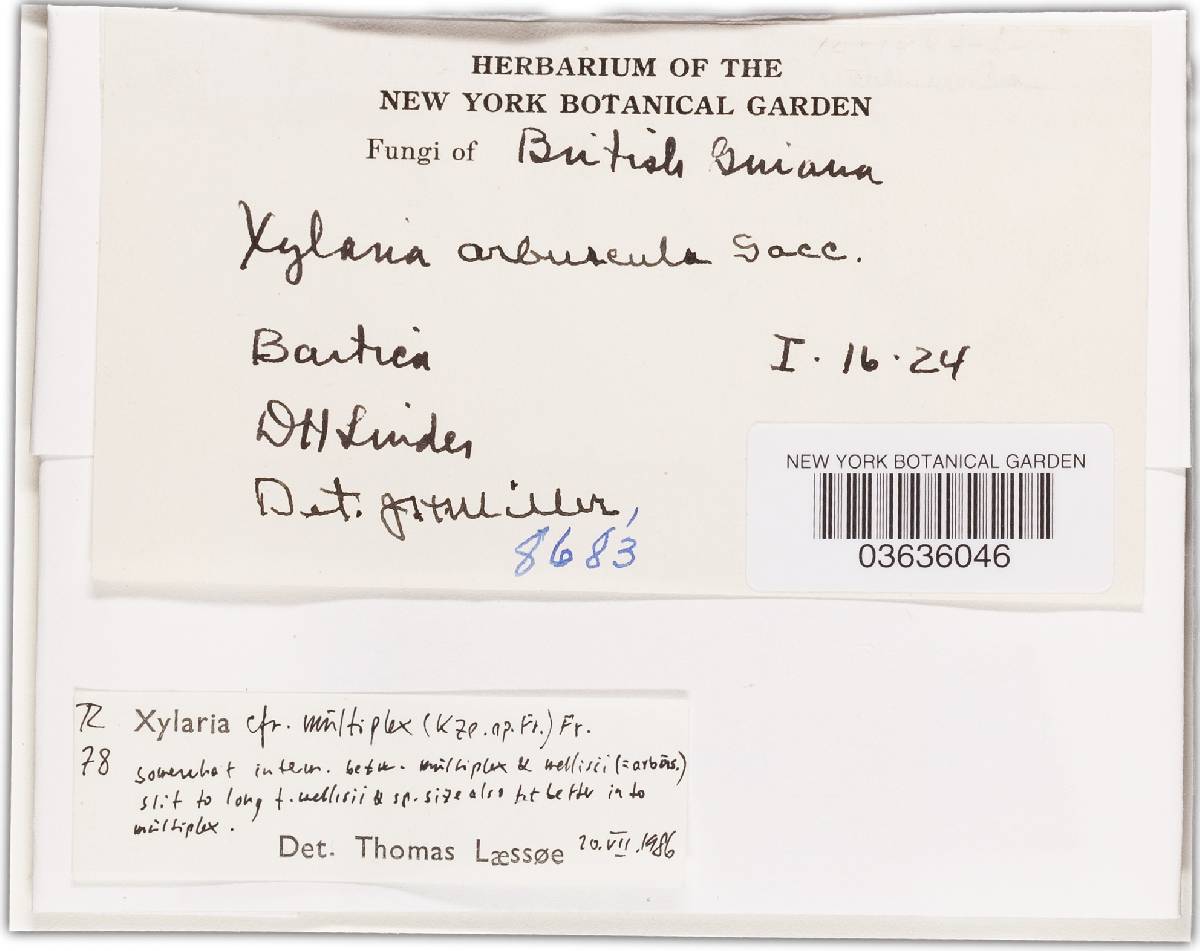 HERBARIUM OF THE
NEW YORK BOTANICAL GARDEN
Fungi of British Guiana
Xylaria arbuscula Sacc.
Bartica I. 16. 24
DH Linder
Det. JHMiller,
8683
NEW YORK BOTANICAL GARDEN
03636046
TL Xylaria cfr. multiplex (Kze. ap. Fr.) Fr.
78 somewhat interm. betw. multiplex & wellisii (=arbus.)
slit to long f. wellisii & sp. size also fit better into
multiplex.
Det. Thomas Læssøe 20.VII.1986